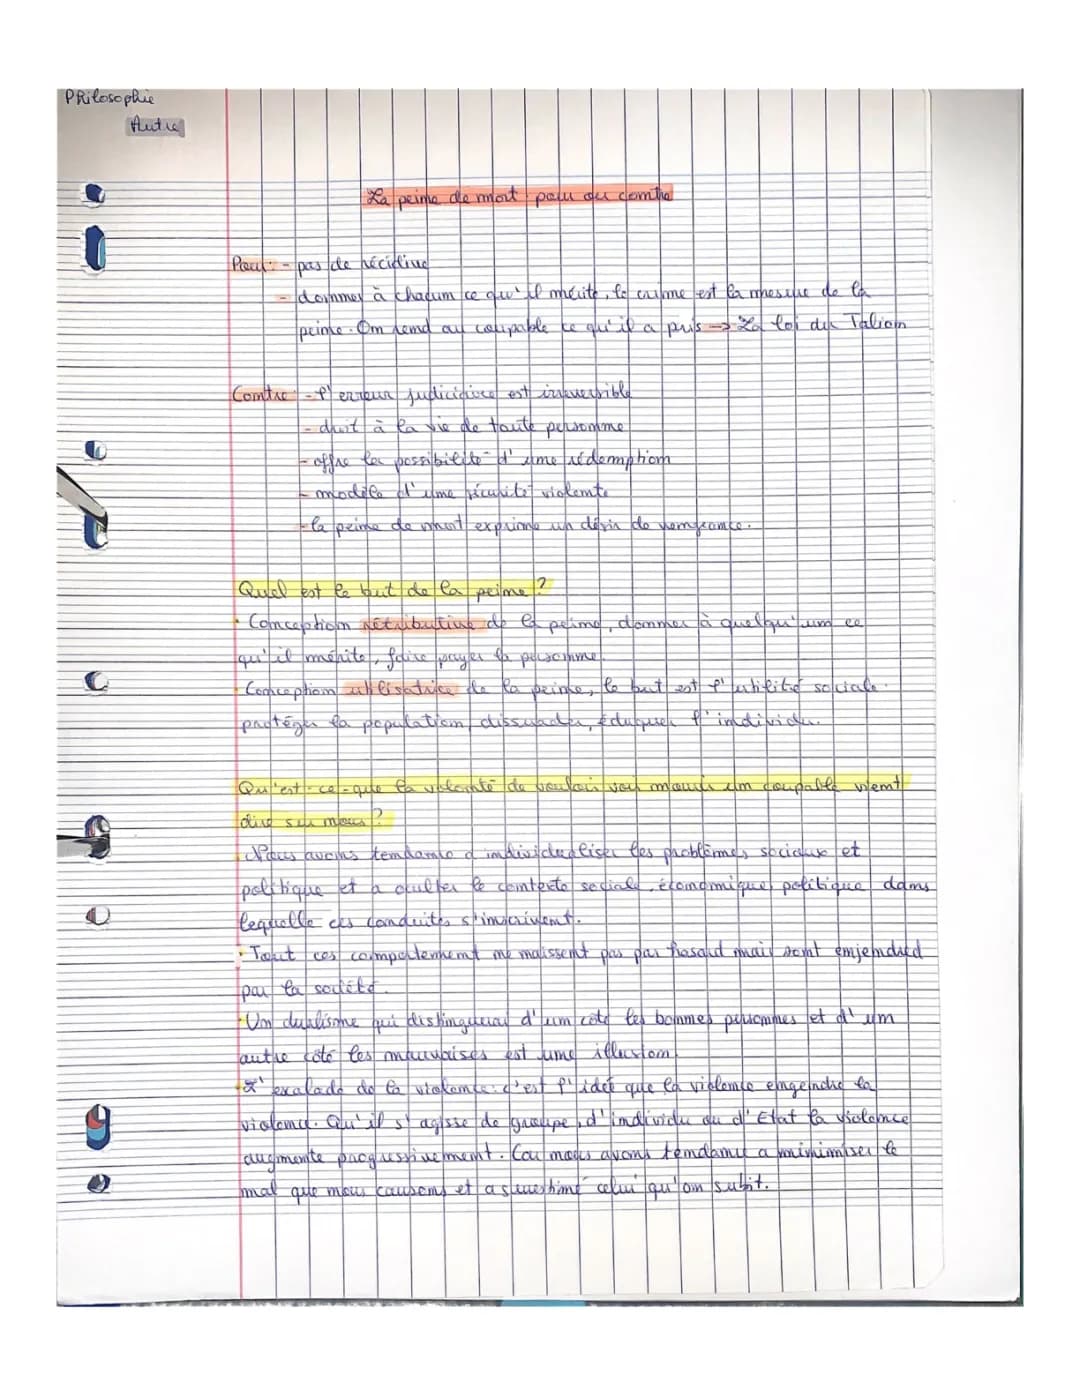 Philosophie
Autre
La peine de mort pour ou contre
Pour : - pas de récidive
- donner à chacun ce qu'il mérite, le crime est la mesure de la
peine. On rend au coupable ce qu'il a pris → La loi du Talion
Contre : - l'erreur judiciaire est irréversible
- droit à la vie de toute personne
- offre la possibilité d'une rédemption
- modèle d'une sécurité violente
- la peine de mort exprime un désir de vengeance.
Quel est le but de la peine ?
• Conception rétributive de la peine, donner à quelqu'un ce
qu'il mérite, faire payer la personne.
• Conception utilisatrice de la peine, le but est l'utilité sociale.
protéger la population, dissuader, éduquer l'individu.
Qu'est-ce-que la volonté de vouloir voir mourir un coupable vient
dire sur nous ?
• Nous avons tendance a individualiser les problèmes sociaux et
politique et a oculter le contexte sociale, économique, politique dans
lequelle ces conduites s'inscrivent.
• Tout ces comportement ne naissent pas par hasard mais sont enjendred
par la société.
• Un dualisme qui distinguerai d'un coté les bonnes personnes et d'un
autre côté les mauvaises est une illusion.
• L'exalade de la violence : c'est l'idée que la violence engendre la
violence. Qu'il s'agisse de groupe, d'individu ou d'Etat la violence
augmente progressivement. Car nous avons tendance a minimiser le
mal que nous causons et a surestimé celui qu'on subit.